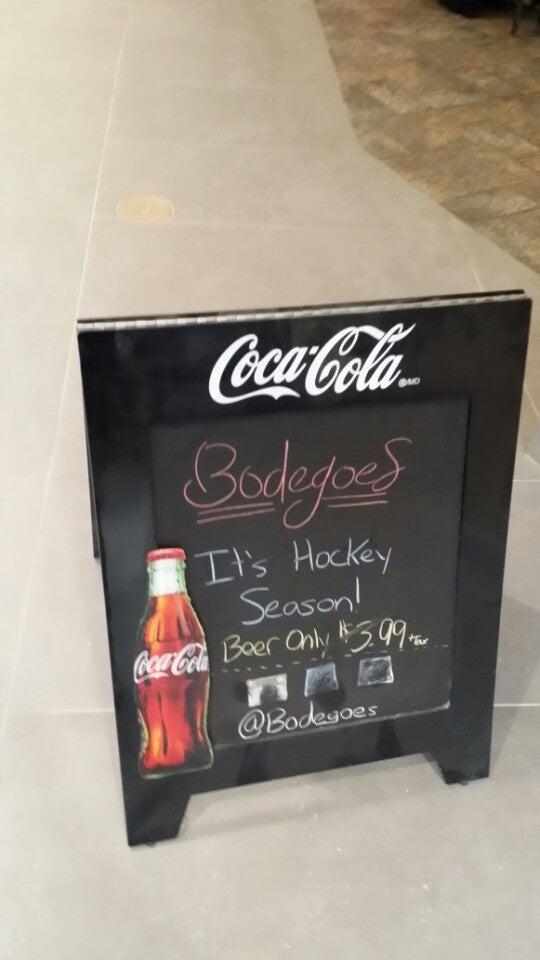 Coca-Cola ®/MD
Bodegoes
It's Hockey
Season!
Beer Only $3.99 +Tax
Coca-Cola
@Bodegoes